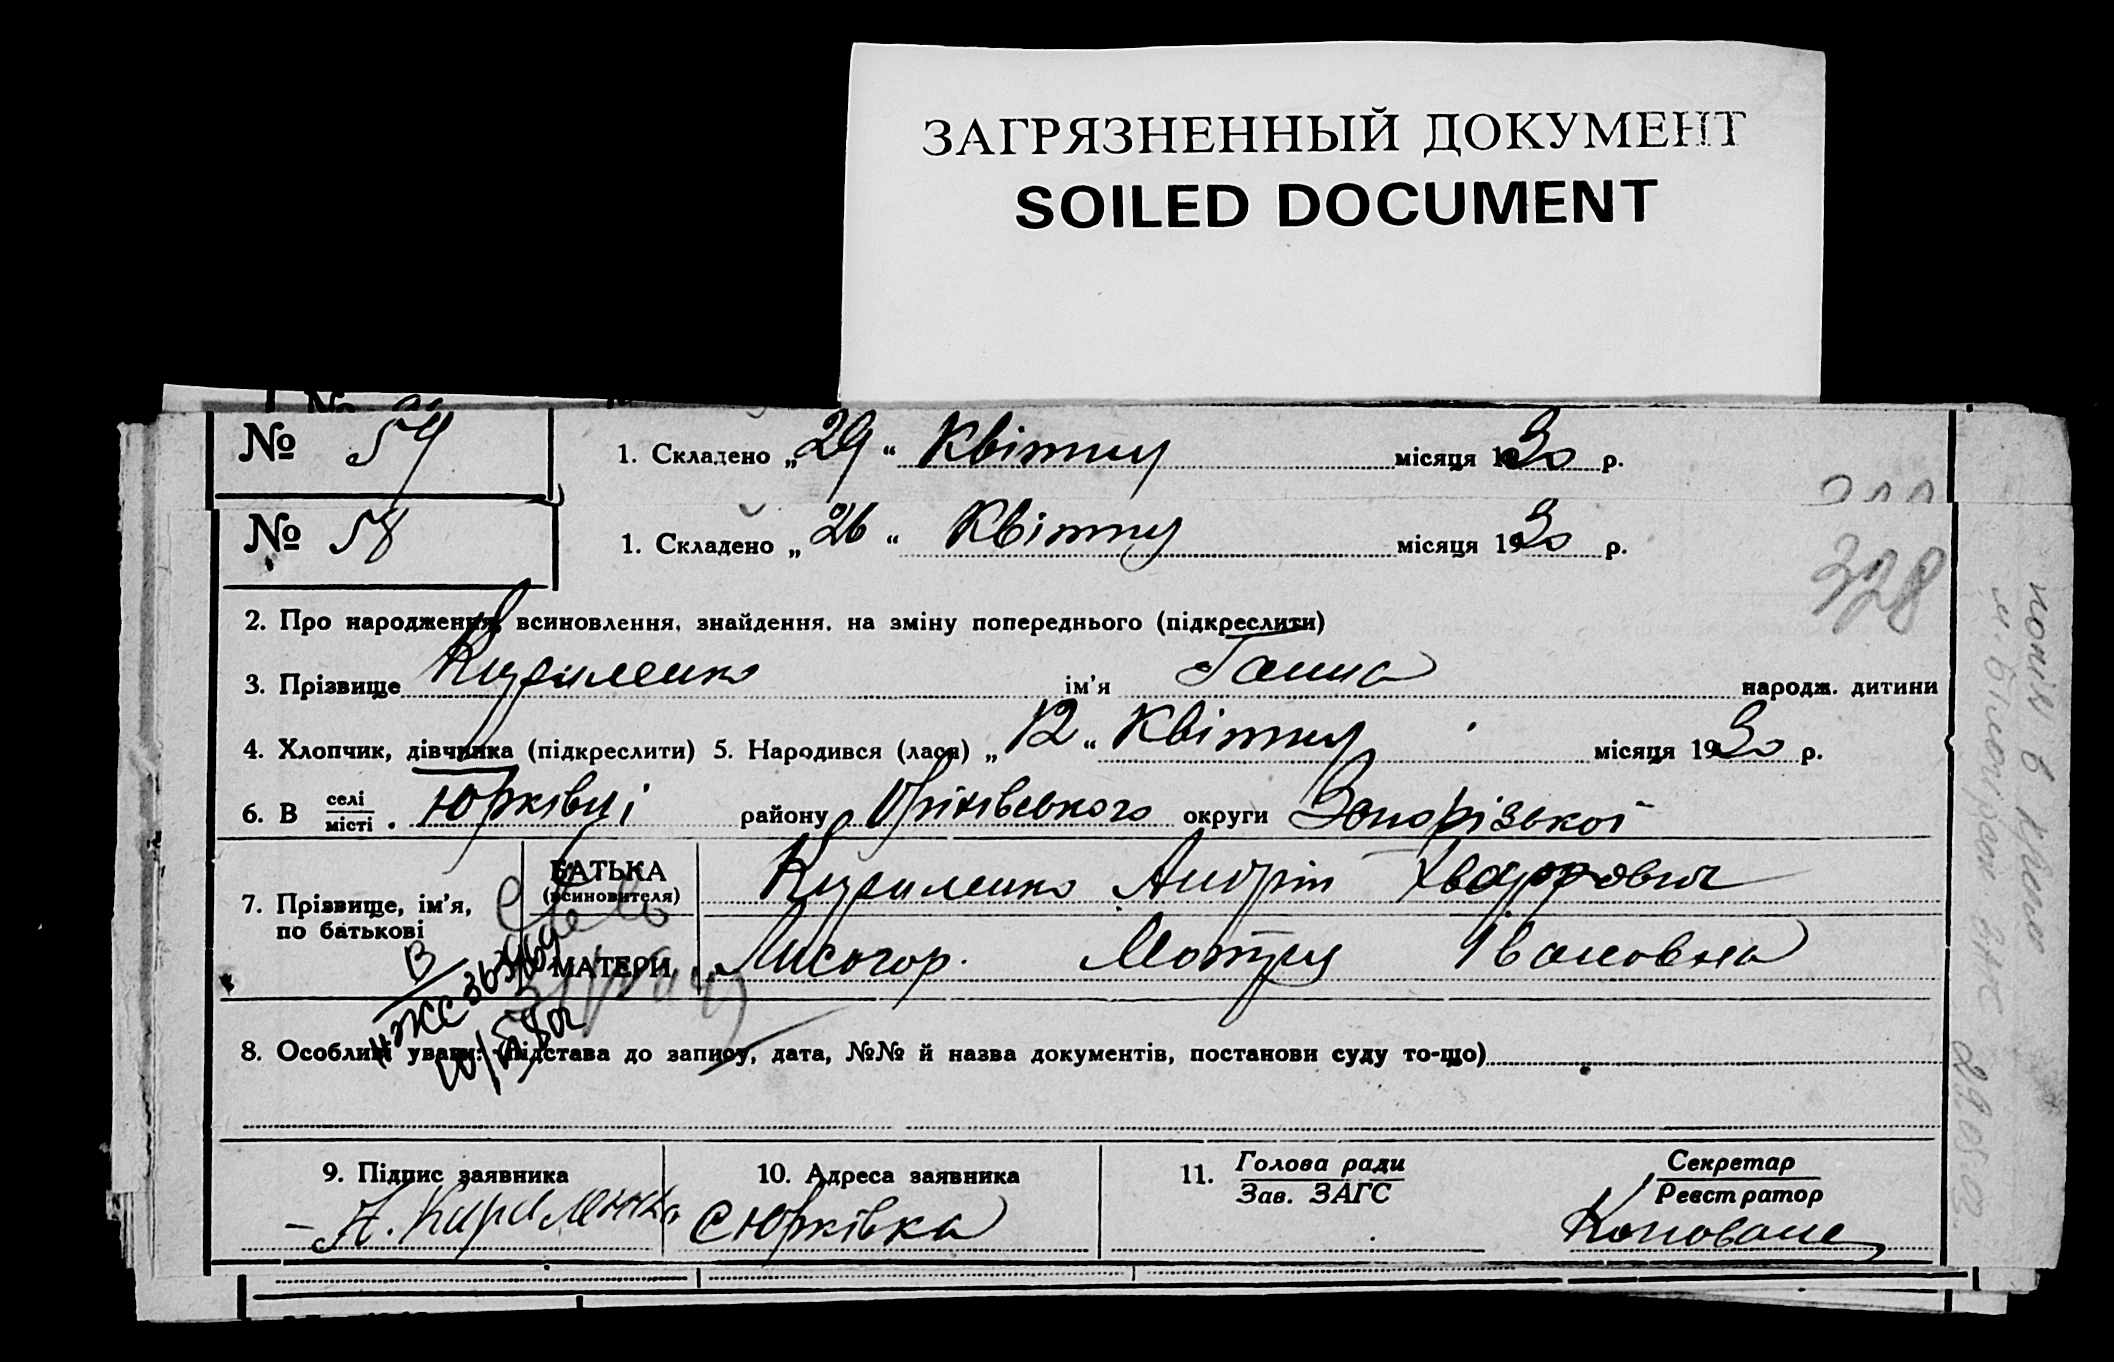 ЗАГРЯЗНЕННЫЙ ДОКУМЕНТ
SOILED DOCUMENT
№ 59 1. Складено „29“ Квітня місяця 1930 р.
№ 58 1. Складено „26“ Квітня місяця 1930 р.
328
2. Про народження, всиновлення, знайдення, на зміну попереднього (підкреслити)
3. Прізвище Кириленко ім'я Ганна народж. дитини
4. Хлопчик, дівчинка (підкреслити) 5. Народився (лася) „12“ Квітня місяця 1930 р.
6. В селі місті Юрківці району Оріхівського округи Запорізької
7. Прізвище, ім'я, по батькові
БАТЬКА (всиновителя) Кириленко Андрій
МАТЕРИ Лисогор Мотря Івановна
8. Особливі уваги: (підстава до запису, дата, №№ й назва документів, постанови суду то-що)
9. Підпис заявника 10. Адреса заявника 11. Голова ради Зав. ЗАГС Секретар Реєстратор
А. Кириленко с Юрківка
29.05.03